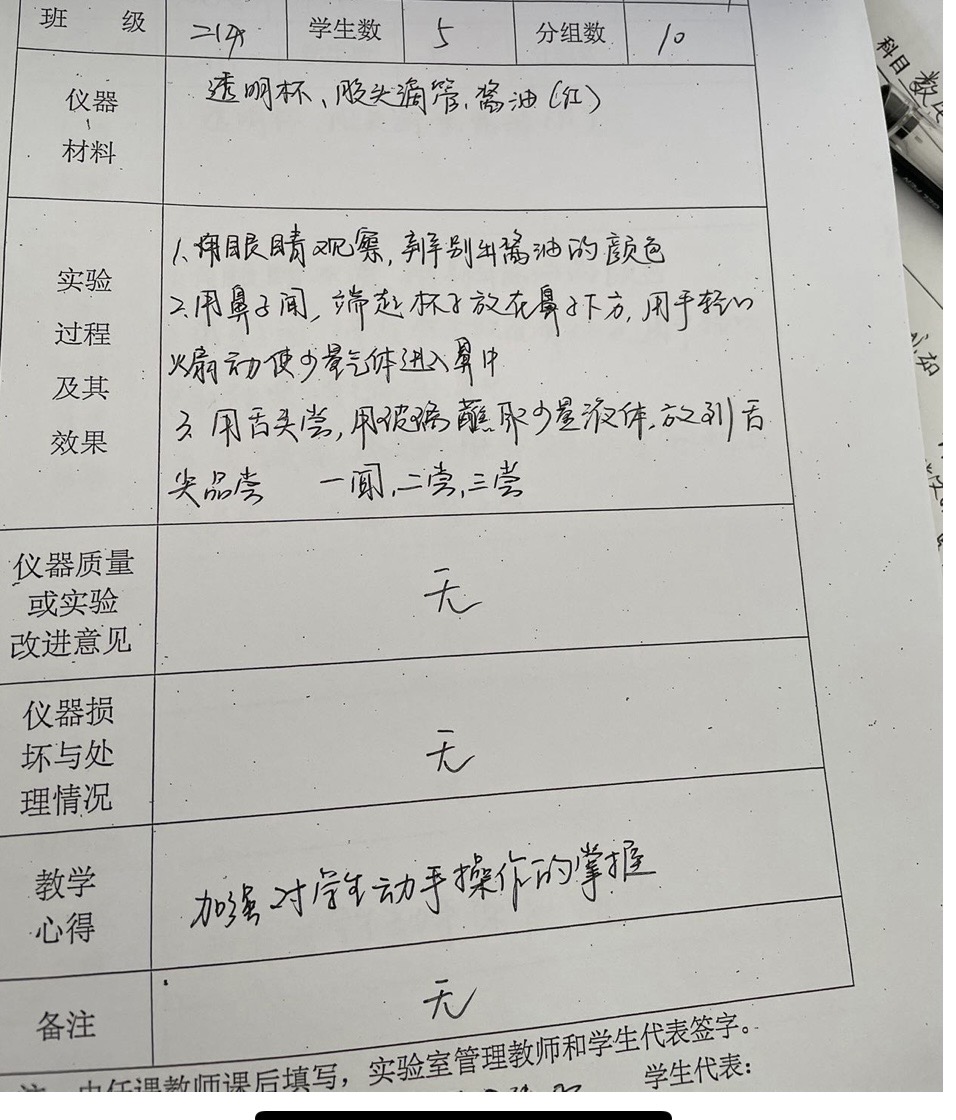 班 级 学生数 5 分组数 10
科目 数
仪器、材料 透明杯、胶头滴管、酱油(红)
实验过程及其效果
1. 用眼睛观察,辨别出酱油的颜色
2. 用鼻子闻, 端起杯子放在鼻子下方, 用手轻
扇动使少量气体进入鼻中
3. 用舌头尝, 用玻璃蘸取少量液体, 放到舌
尖品尝 一闻, 二尝, 三尝
仪器质量
或实验 无
改进意见
仪器损
坏与处 无
理情况
教学
心得 加强对学生动手操作的掌握
备注 无
注 由任课教师课后填写,实验室管理教师和学生代表签字。
学生代表: